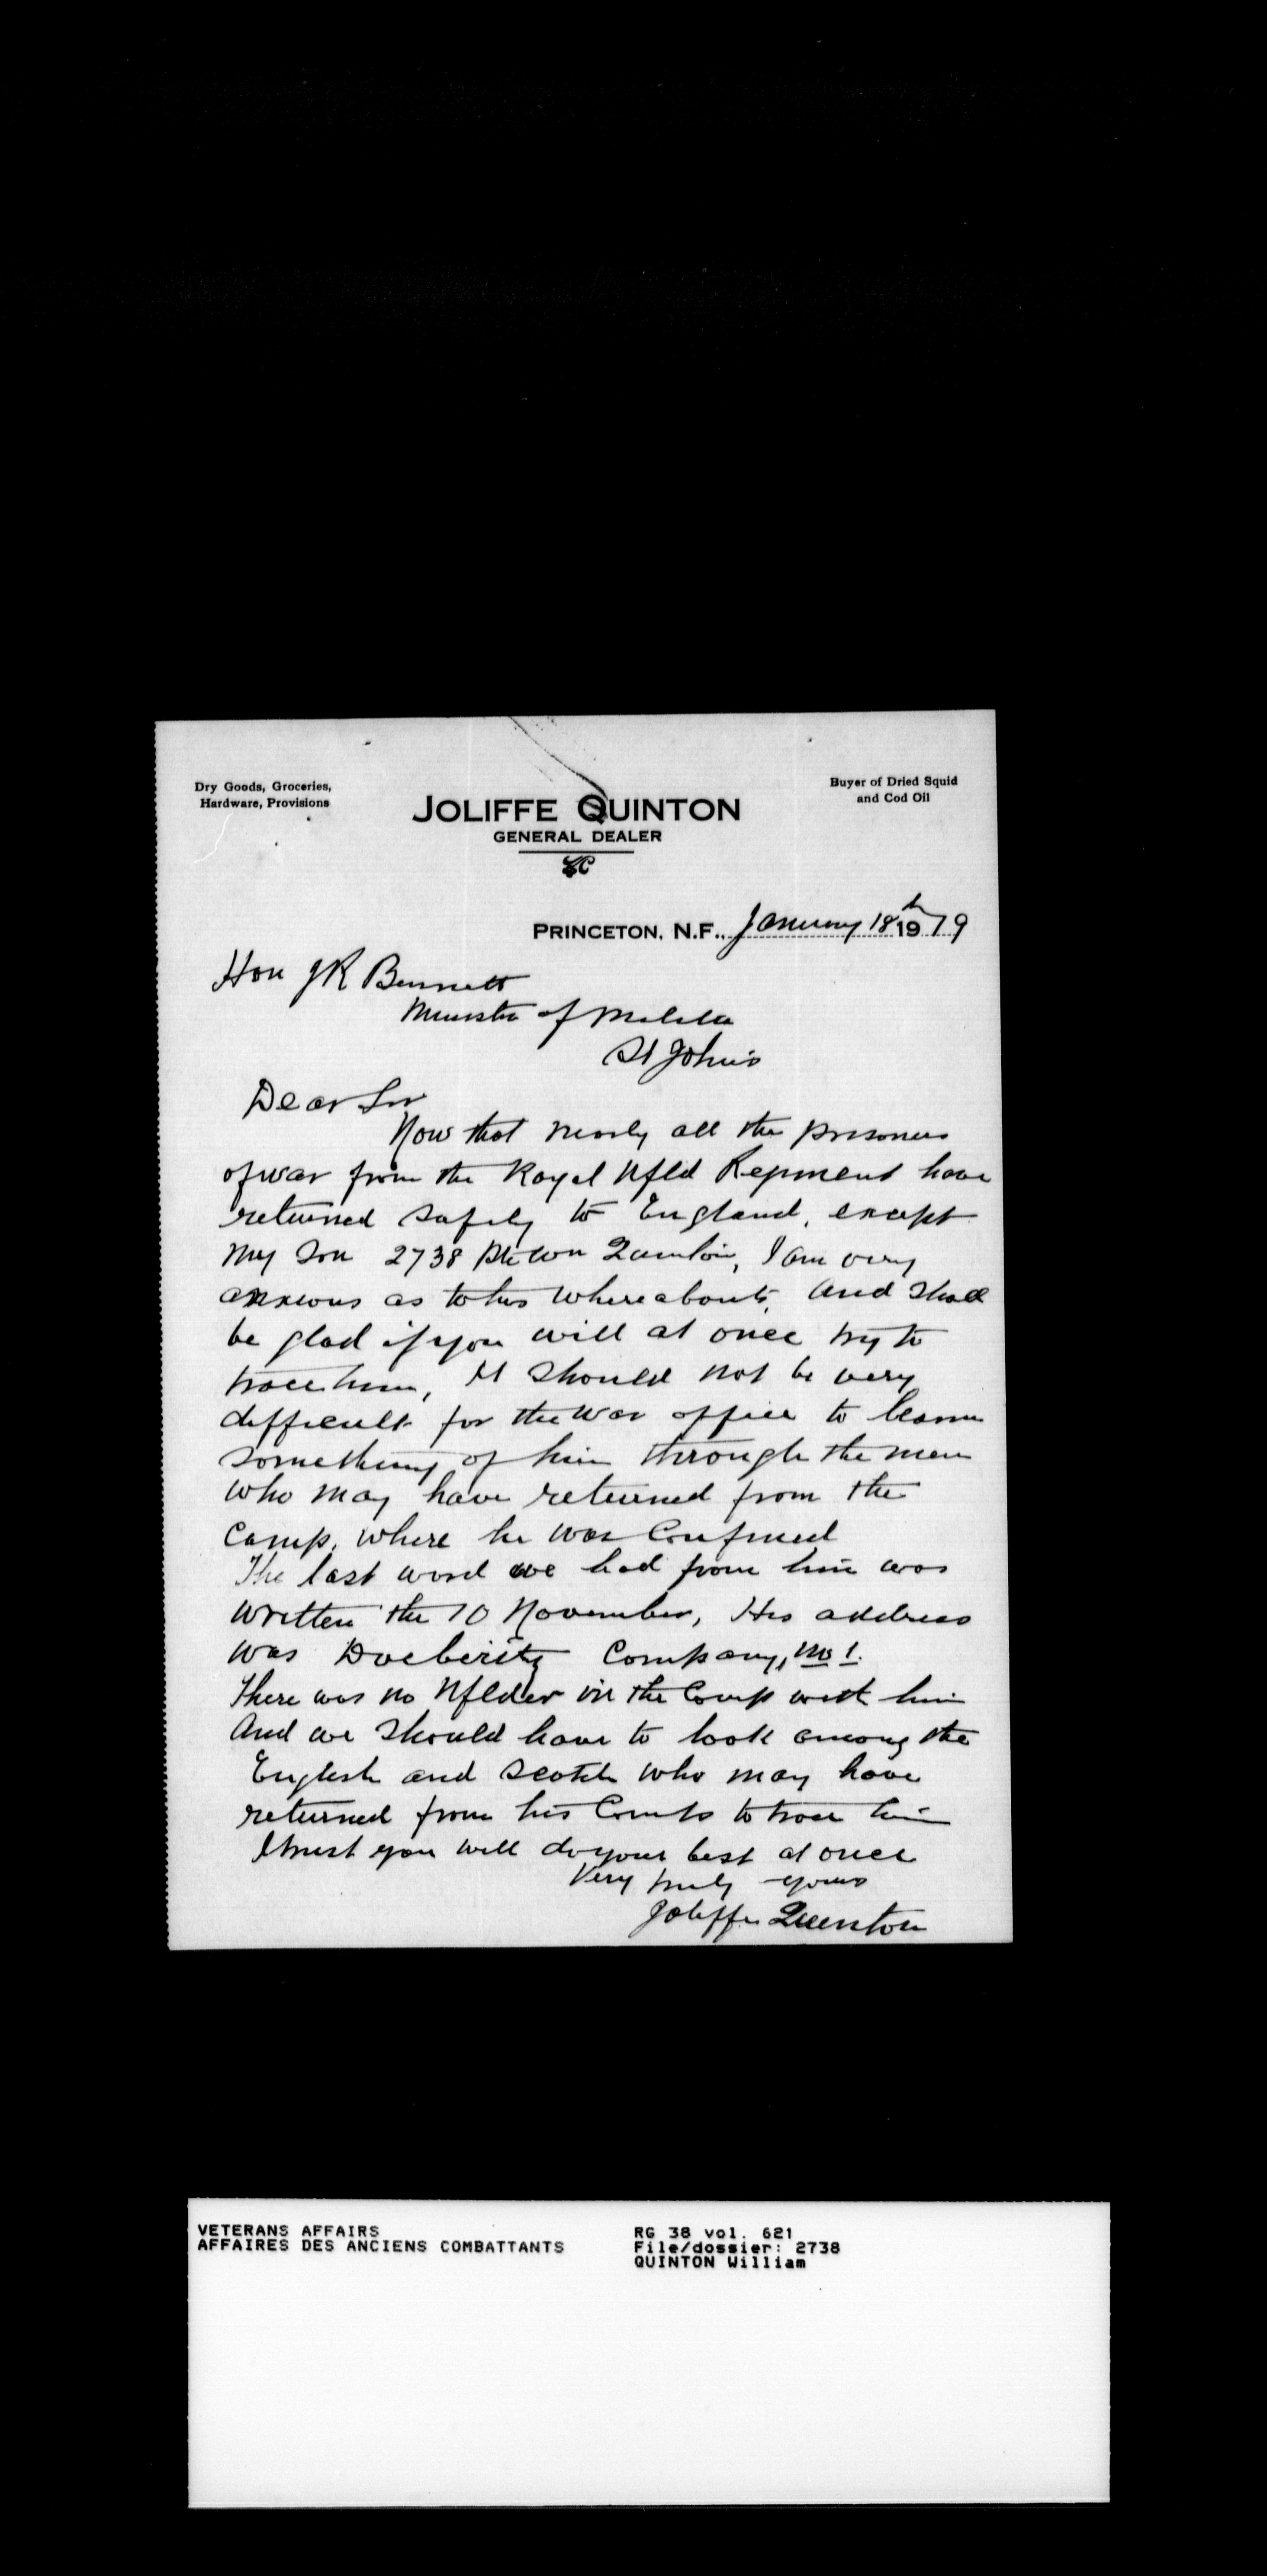 Dry Goods, Groceries,
Hardware, Provisions
Buyer of Dried Squid
and Cod Oil
JOLIFFE QUINTON
GENERAL DEALER
PRINCETON, N.F., January 18th 1919
Hon JR Bennett
Minister of Militia
St John's
Dear Sir
Now that nearly all the prisoners
of war from the Royal Nfld Regiment have
returned safely to England, except
my son 2738 Pte Wm Quinton, I am very
anxious as to his whereabouts, and shall
be glad if you will at once try to
trace him, It should not be very
difficult for the War office to learn
something of him through the men
who may have returned from the
Camp, where he was Confined
The last word we had from him was
written the 10 November, His address
was Doeberitz Company, No 1.
There was no Nflder in the Camp with him
And we should have to look among the
English and Scotch who may have
returned from his Camp to trace him
I trust you will do your best at once
Very truly yours
Joliffe Quinton
VETERANS AFFAIRS
AFFAIRES DES ANCIENS COMBATTANTS
RG 38 vol. 621
File/dossier: 2738
QUINTON William